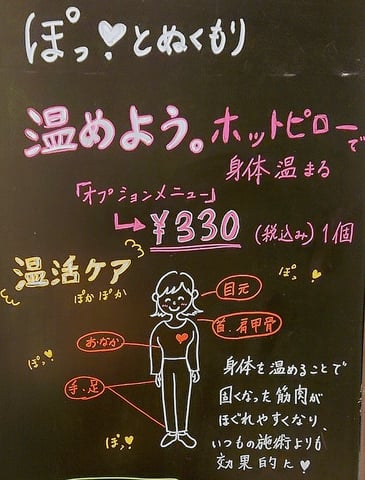 ぽっ♡とぬくもり
温めよう。ホットピローで
身体温まる
「オプションメニュー」
↳¥330 (税込み) 1個
温活ケア
ぽかぽか
ぽっ♡
目元
首、肩甲骨
おなか
ぽっ♡
手、足
ぽっ♡
身体を温めることで
固くなった筋肉が
ほぐれやすくなり、
いつもの施術よりも
効果的に♡